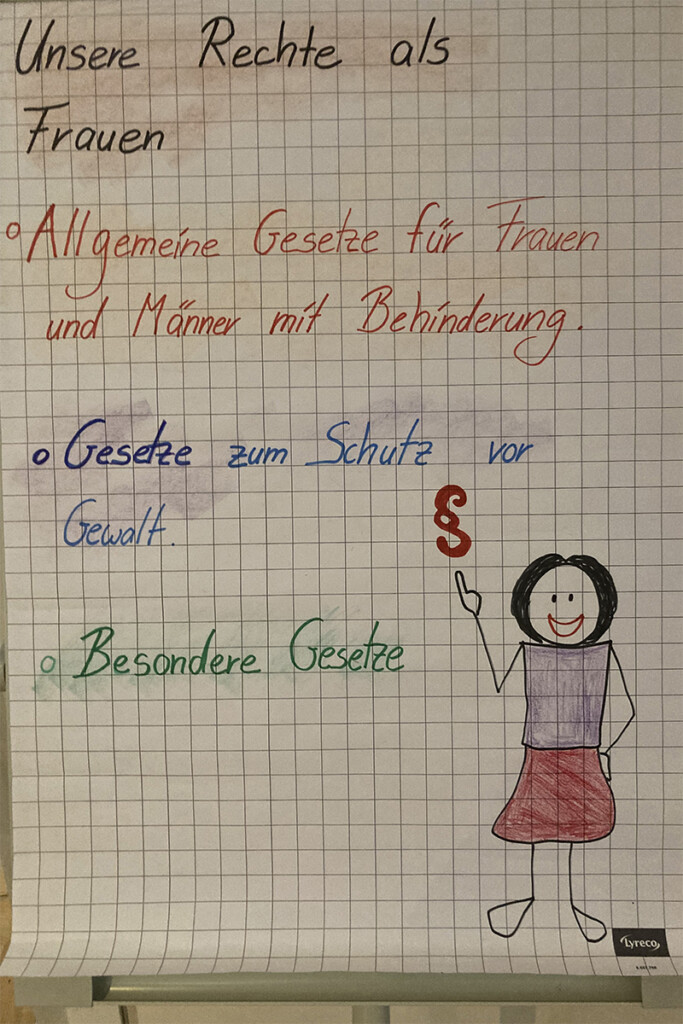 Unsere Rechte als
Frauen
o Allgemeine Gesetze für Frauen
und Männer mit Behinderung.
o Gesetze zum Schutz vor
Gewalt.
§
o Besondere Gesetze
Lyreco